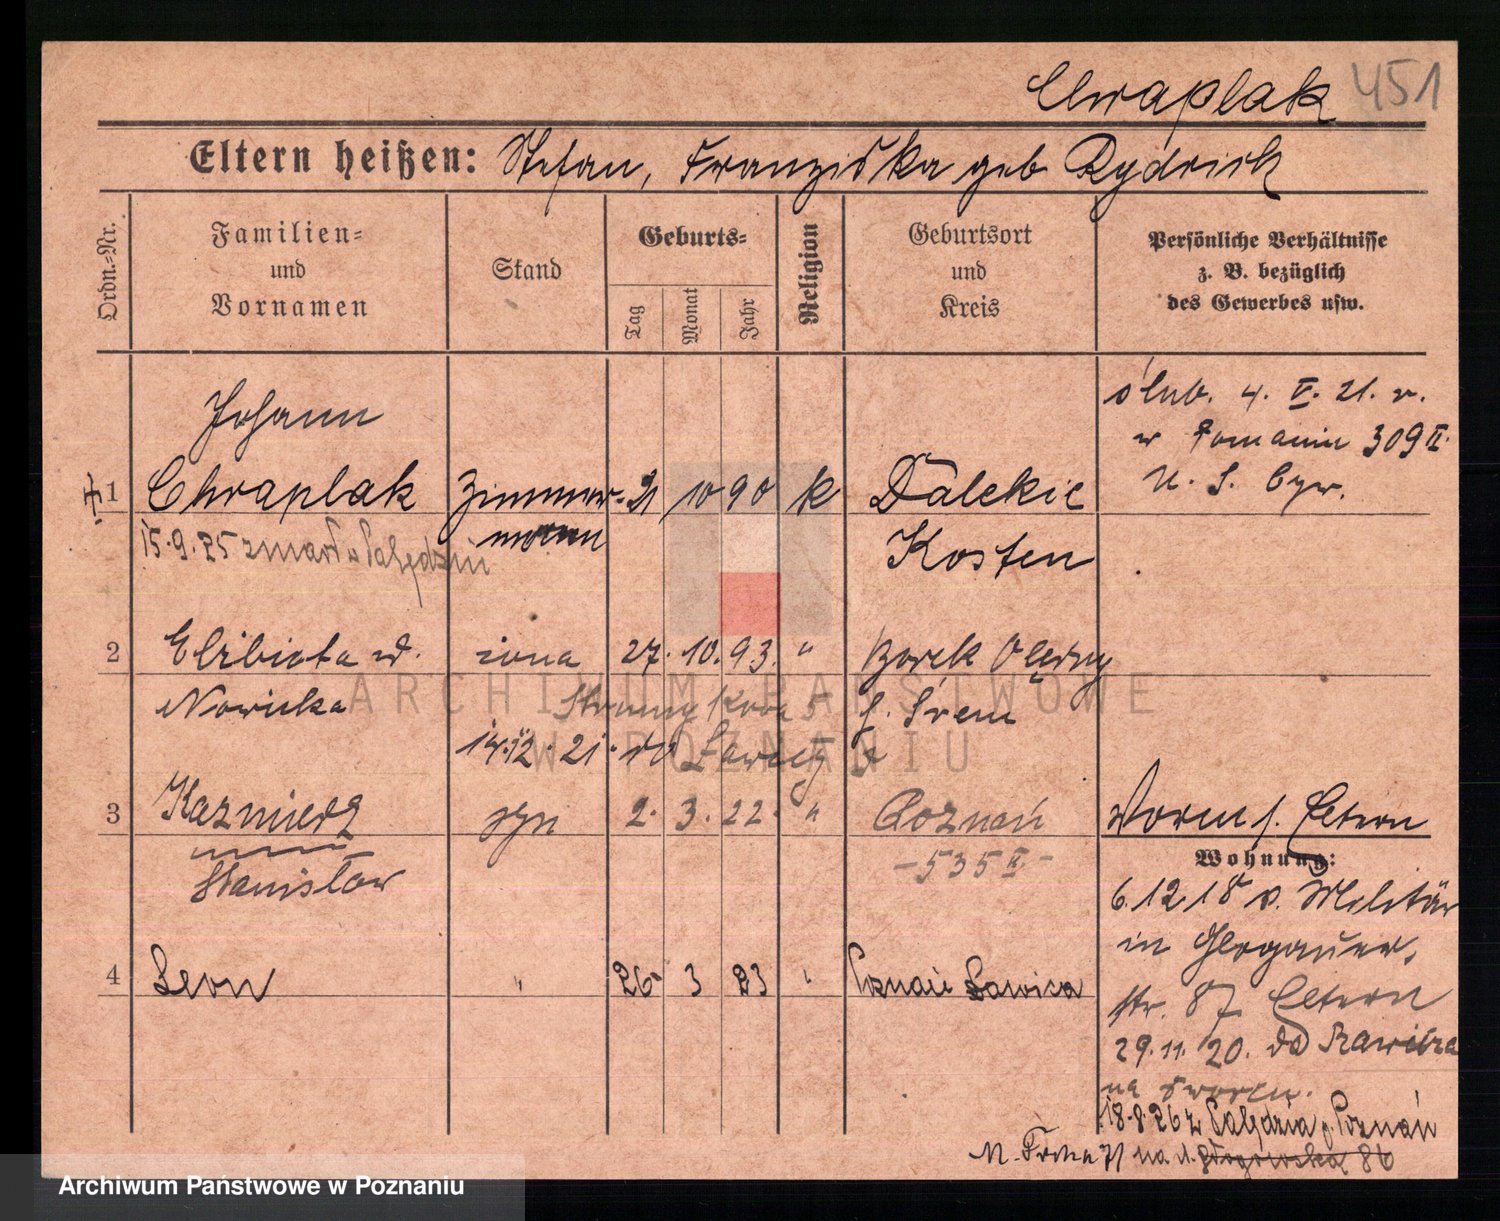 Chraplak 451
Eltern heißen: Stefan, Franziska geb Rydrich
Ordn.-Nr.
Familien- und Vornamen
Stand
Geburts-
Tag
Monat
Jahr
Religion
Geburtsort und Kreis
Persönliche Verhältnisse z. B. bezüglich des Gewerbes usw.
Johann
1 Chraplak Zimmer- 21 10 90 k Dalekie
mann Kosten
15.9.25 zmarł w
ślub. 4. V. 21. r.
w Poznaniu 309 II.
U. S. Cyw.
2 Elżbieta z d. żona 27. 10. 93. " Borek
Nowicka p. Śrem
14.12.21. do Ławicy
3 Kazmierz syn 2. 3. 22. " Poznań
Stanisław - 535 II -
4 Leon " 26 3 23 " Poznań Ławica
Vorm f. Eltern
Wohnung:
6.12.18 v. Militär
in Glogauer.
str. 87 Eltern
29.11.20. do Rawicza
na
18.8.26 z p. Poznań
na ul. Głogowską 86
ARCHIWUM PAŃSTWOWE
W POZNANIU
Archiwum Państwowe w Poznaniu